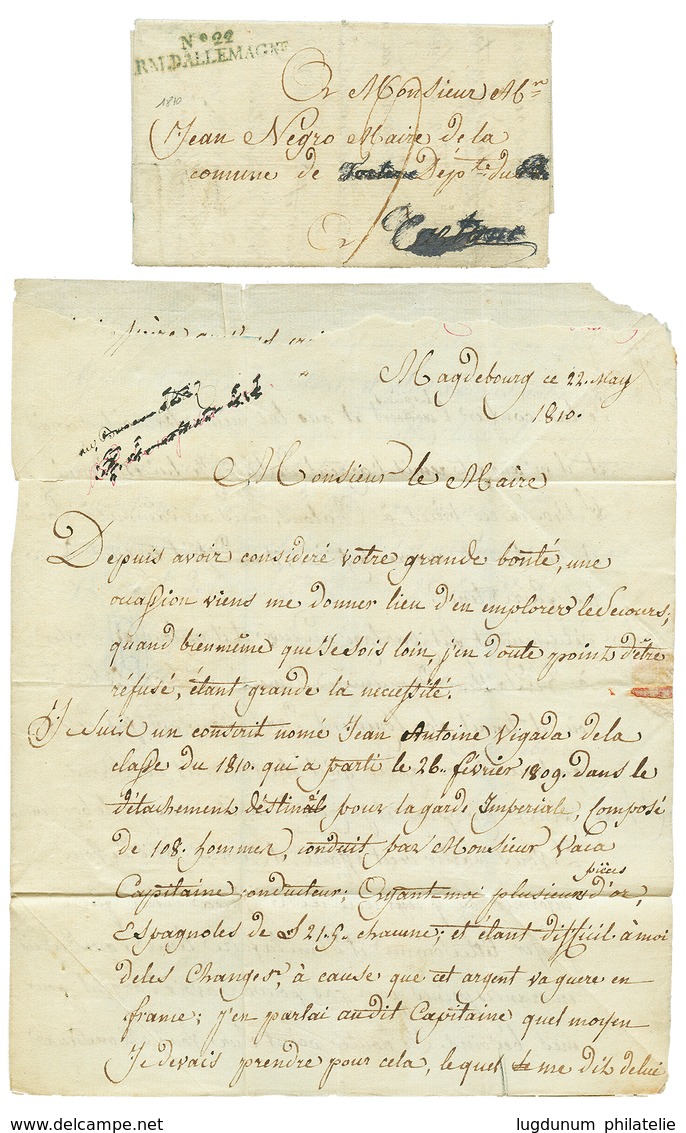 N.º 22
ARM. D'ALLEMAGNE
1810
A Monsieur M.r
Jean Négro Maire de la
comune de Dép.te du
A
Magdebourg ce 22. May
1810.
Monsieur le Maire
Depuis avoir consideré votre grande bonté, une
occassion viens me donner lieu d'en emplorer le Secours;
quand bienmême que Je sois loin, j'en doute point d'être
réfusé, étant grande la necessité.
Je suis un conscrit nomé Jean Antoine Vigada dela
classe du 1810. qui a parti le 26. février 1809. dans le
détachement déstiné pour la garde Imperiale, composé
de 108. hommes, conduit par Monsieur Vaca
Capitaine conducteur; Ayant moi plusieurs pièces d'or,
Espagnoles de £ 21.5. chacune; et étant difficil à moi
deles Changer, à cause que cet argent va guere en
france; j'en parlai audit Capitaine quel moyen
Je devais prendre pour cela, le quel me dit delui
delcampe.net
lugdunum philatelie